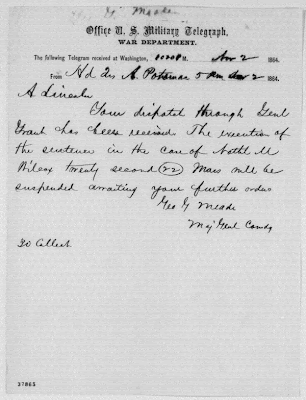 G Meade
Office U. S. Military Telegraph,
WAR DEPARTMENT.
The following Telegram received at Washington, M. Nov 2 1864.
From Hd Qrs A. Potomac 5 Nov 2 1864.
A Lincoln
Your dispatch through Genl
Grant has been received The execution of
the sentence in the case of Nathl M
Wilcox twenty second (22) Mass will be
suspended awaiting your further orders
Geo G Meade
Maj Genl Comdg
20 Collect
37865